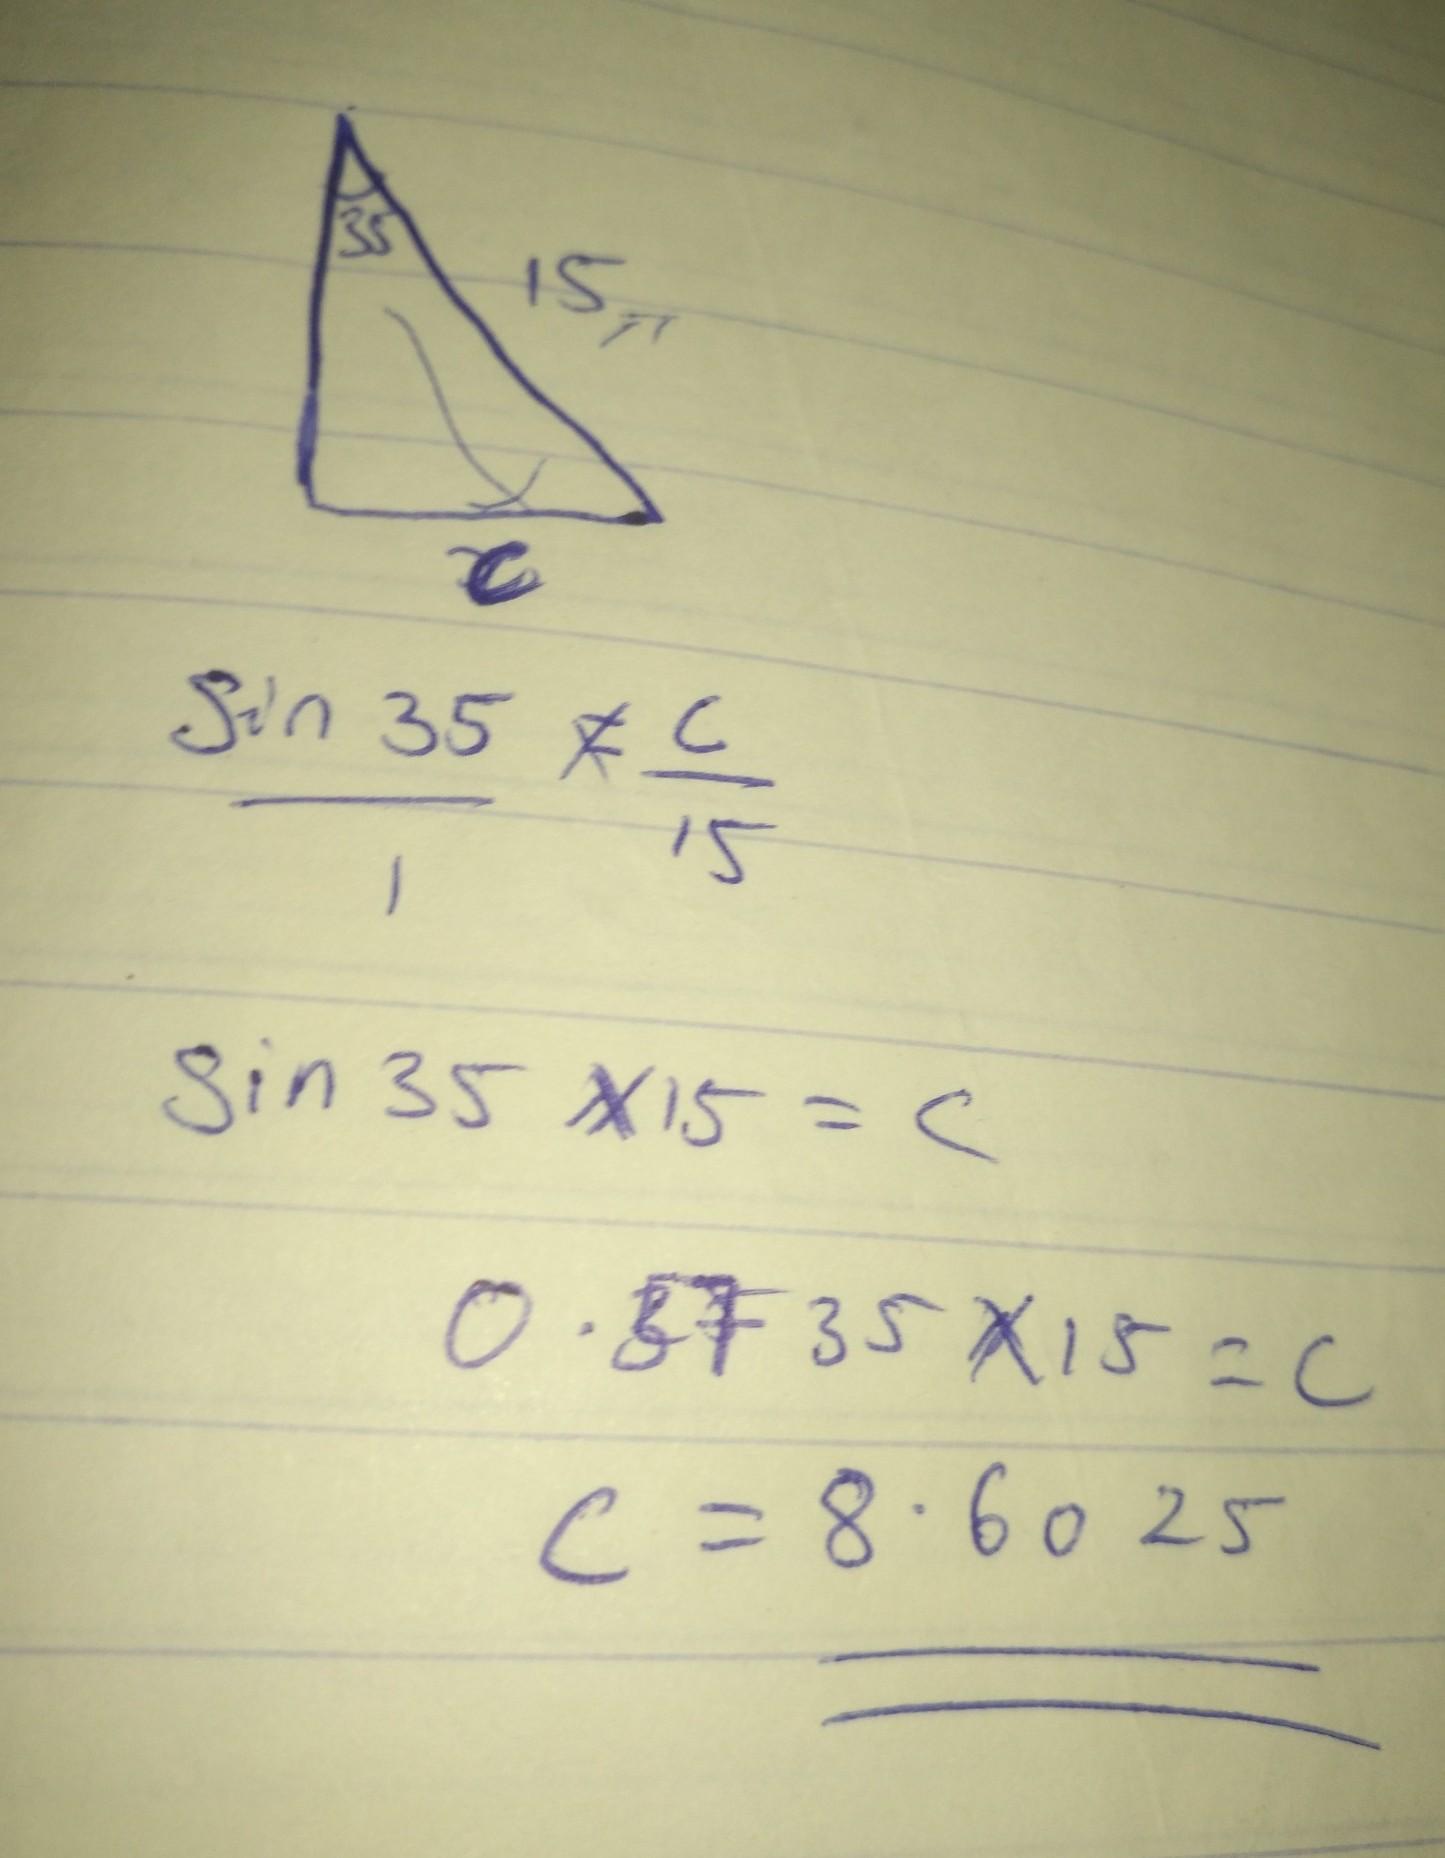 35
15
c
sin 35 = c
1 15
sin 35 X 15 = c
0.5735 X 15 = c
c = 8.6025